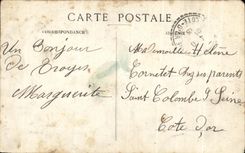 CARTE POSTALE
CORRESPONDANCE
Un Bonjour
de Troyes
Marguerite
Mademoiselle Hélène
Cornetet chez ses parents
Saint Colombe s/ Seine
Côte d'or